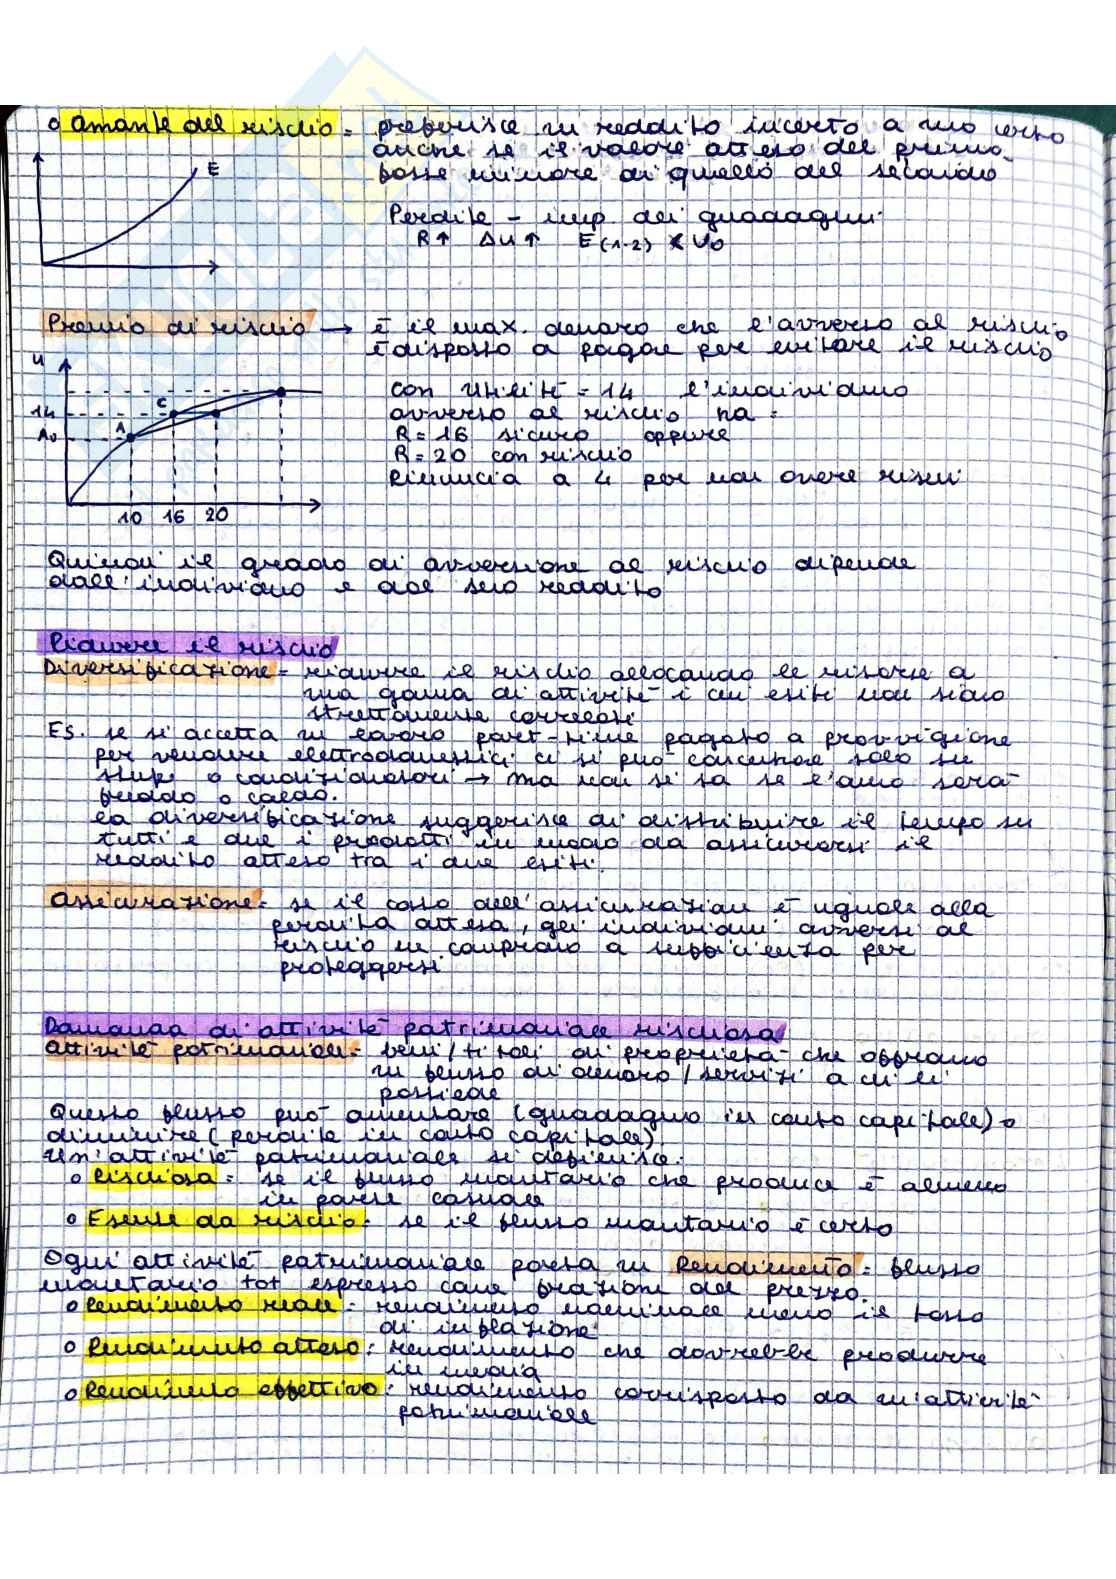 o amante del rischio = preferisce un reddito incerto a uno certo
anche se il valore atteso del primo
fosse minore di quello del secondo
E
Perdite - imp. dei guadagni
R↑ Δu↑ E(1-2) < U0
Premio di rischio → è il max. denaro che l'avverso al rischio
è disposto a pagare per evitare il rischio
u
14
A0
A
C
10 16 20
con utilità = 14 l'individuo
avverso al rischio ha:
R=16 sicuro oppure
R=20 con rischio
Rinuncia a 4 per non avere rischi
Quindi il grado di avversione al rischio dipende
dall'individuo e dal suo reddito
Ridurre il rischio
Diversificazione = ridurre il rischio allocando le risorse a
una gamma di attività i cui esiti non siano
strettamente correlati
Es. se si accetta un lavoro part-time pagato a provvigione
per vendere elettrodomestici ci si può concentrare solo su
stufe o condizionatori → ma non si sa se l'anno sarà
freddo o caldo.
La diversificazione suggerisce di distribuire il tempo su
tutti e due i prodotti in modo da assicurarsi il
reddito atteso tra i due esiti.
Assicurazione = se il costo dell'assicurazione è uguale alla
perdita attesa, gli individui avversi al
rischio ne comprano a sufficienza per
proteggersi
Domanda di attività patrimoniale rischiosa
Attività patrimoniale = beni/titoli di proprietà che offrono
un flusso di denaro/servizi a chi li
possiede
Questo flusso può aumentare (guadagno in conto capitale) o
diminuire (perdite in conto capitale).
Un'attività patrimoniale si definisce:
o Rischiosa = se il flusso monetario che produce è almeno
in parte casuale
o Esente da rischio = se il flusso monetario è certo
Ogni attività patrimoniale porta un Rendimento = flusso
monetario tot espresso come frazione del prezzo.
o Rendimento reale = rendimento nominale meno il tasso
di inflazione
o Rendimento atteso = rendimento che dovrebbe produrre
in media
o Rendimento effettivo = rendimento corrisposto da un'attività
patrimoniale